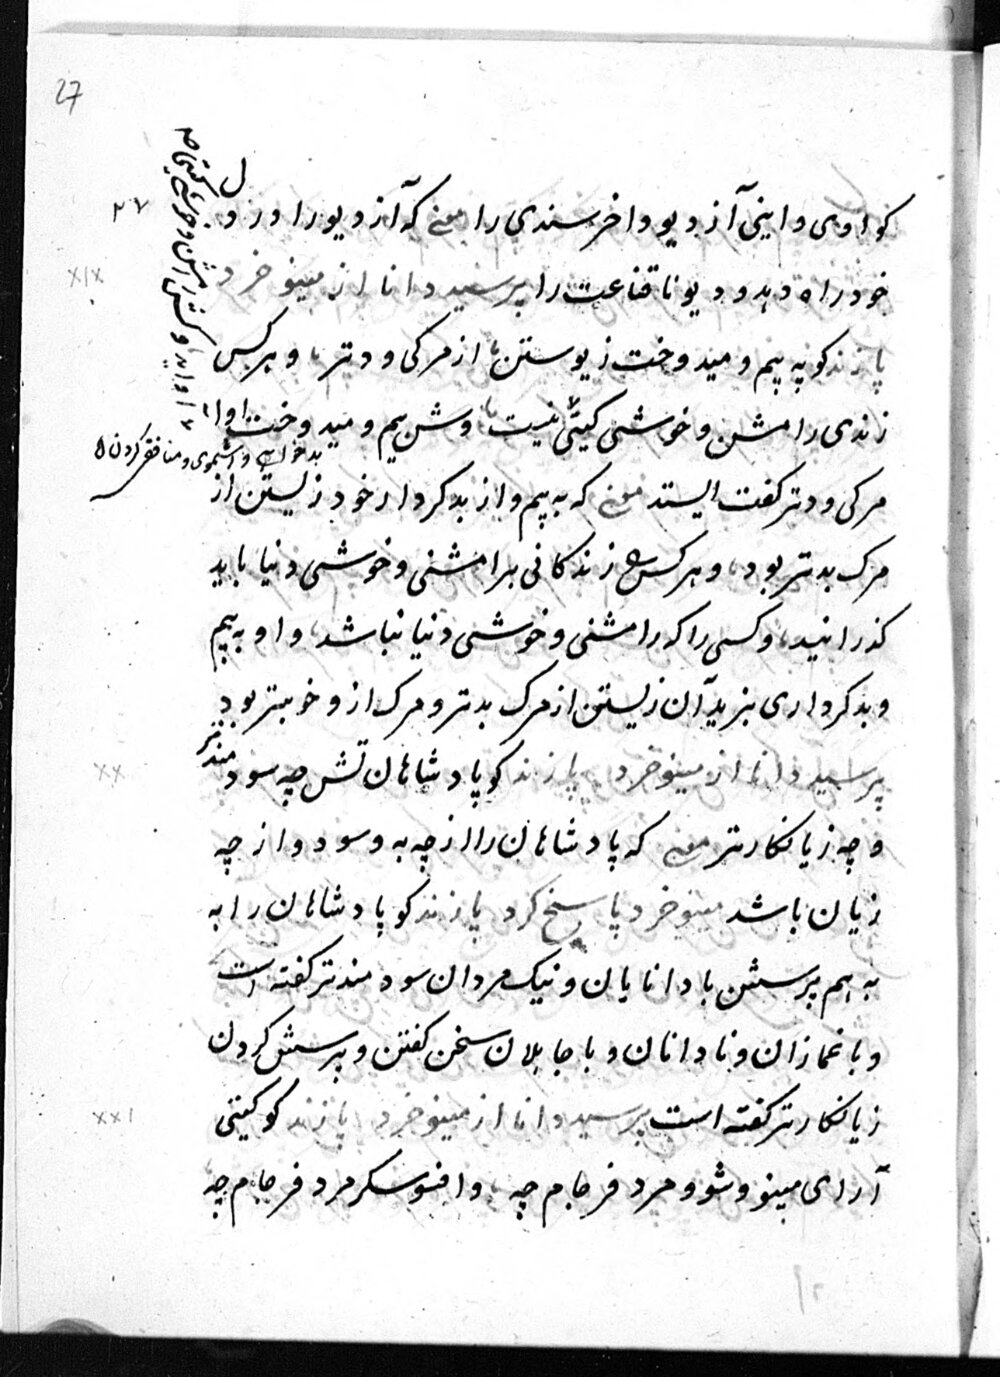 27
۲۷
کواوی واینی آز دیو واخرسندی را معنے که آز دیو را در دل
خود راه دهد و دیو نا قناعت را پرسید دانا از مینوخرد
XIX
پازند کو په پیم و مید وخت زیوستن از مرکی و دتر و هر کس
زندی رامشن و خوشی کیتی نیست وش بیم و مید وخت اوا
بدخواهی و اشموی و منافقی کردن
مرکی و دتر کفت ایستد معنے که به بیم و از بدکردار خود زیستن از
مرک بدتر بود و هر کس زندکانی برامشنی و خوشی دنیا باید
کذرانید وکسی را که رامشنی و خوشی دنیا نباشد و او به بیم
و بدکرداری بزید آن زیستن از مرک بدتر و مرک از و خوبتر بود
پرسید دانا از مینوخرد پازند کو پادشاهان تش چه سودمندتر
XX
و چه زیانکارتر معنے که پادشاهان را از چه به و سود و از چه
زیان باشد مینوخرد پاسخ کرد پازند کو پادشاهان را به
به هم پرسشن با دانایان و نیک مردان سودمندتر کفته است
و با غمازان و نادانان و با جاهلان سخن کفتن و پرسش کردن
زیانکارتر کفته است پرسید دانا از مینوخرد پازند کو کیتی
XXI
آرای مینو وشو و مرد فرجام چه وافسوسکر مرد فرجام چه